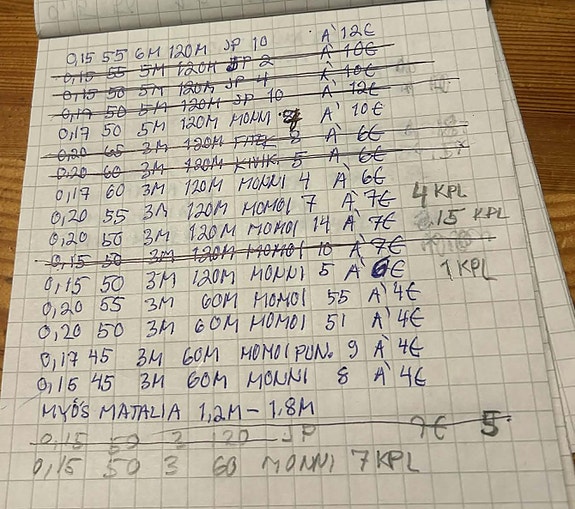 0,15 55 6M 120M JP 10 A' 12€
0,15 55 5M 120M JP 2 A' 10€
0,15 50 5M 120M JP 4 A' 10€
0,17 50 5M 120M JP 10 A' 12€
0,17 50 5M 120M MONNI A' 10€
0,20 65 3M 120M A' 6€
0,20 60 3M 120M 5 A' 6€
0,17 60 3M 120M MONNI 4 A' 6€
0,20 55 3M 120M MOMOI 7 A' 7€ 4 KPL
0,20 50 3M 120M MOMOI 14 A' 7€ 15 KPL
0,15 50 3M 120M MOMOI 10 A' 7€
0,15 50 3M 120M MONNI 5 A' 6€ 1 KPL
0,20 55 3M 60M MOMOI 55 A' 4€
0,20 50 3M 60M MOMOI 51 A' 4€
0,17 45 3M 60M MOMOI PUN. 9 A' 4€
0,15 45 3M 60M MONNI 8 A' 4€
MYÖS MATALIA 1,2M - 1,8M
0,15 50 3 120 JP 7€ 5
0,15 50 3 60 MONNI 7 KPL